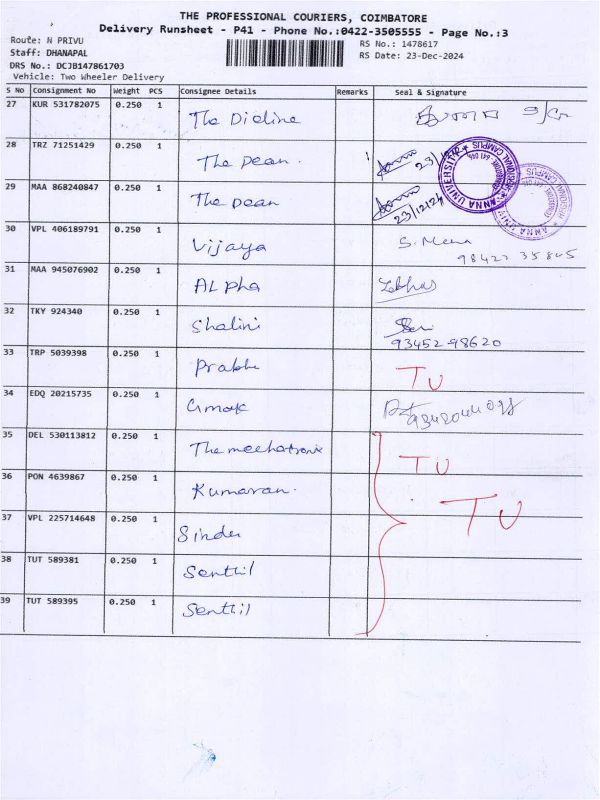 THE PROFESSIONAL COURIERS, COIMBATORE
Delivery Runsheet - P41 - Phone No.:0422-3505555 - Page No.:3
Route: N PRIVU
RS No.: 1478617
Staff: DHANAPAL
RS Date: 23-Dec-2024
DRS No.: DCJB147861703
Vehicle: Two Wheeler Delivery
S No Consignment No Weight PCS Consignee Details Remarks Seal & Signature
27 KUR 531782075 0.250 1 The Dicline
28 TRZ 71251429 0.250 1 The Dean. 23/12/24
29 MAA 868240847 0.250 1 The Dean 23/12/24
ANNA UNIVERSITY
30 VPL 406189791 0.250 1 Vijaya S. Mena
98422 35845
31 MAA 945076902 0.250 1 ALpha
32 TKY 924340 0.250 1 Shalini
93452 98620
33 TRP 5039398 0.250 1 Prabhu TU
34 EDQ 20215735 0.250 1
35 DEL 530113812 0.250 1 The mechatronix TU
36 PON 4639867 0.250 1 Kumaran. TU
37 VPL 225714648 0.250 1 Sinder
38 TUT 589381 0.250 1 Senthil
39 TUT 589395 0.250 1 Senthil